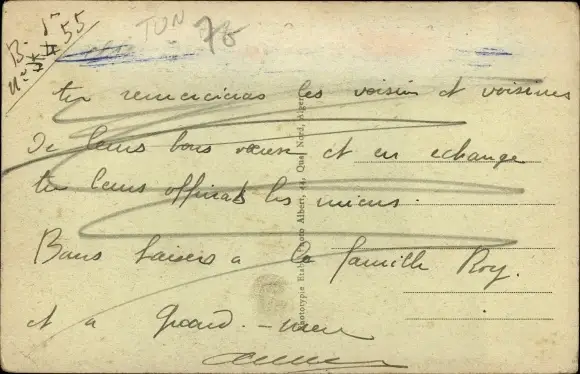 B. 5
n° 55
TUN
75
tu remercieras les voisins et voisines
de leurs bons voeux et en echange
tu leurs offriras les miens.
Bons baisers a la famille Roy.
et a Grand-mere
Phototypie Etabl. Photo Albert, 44, Quai Nord, Alger